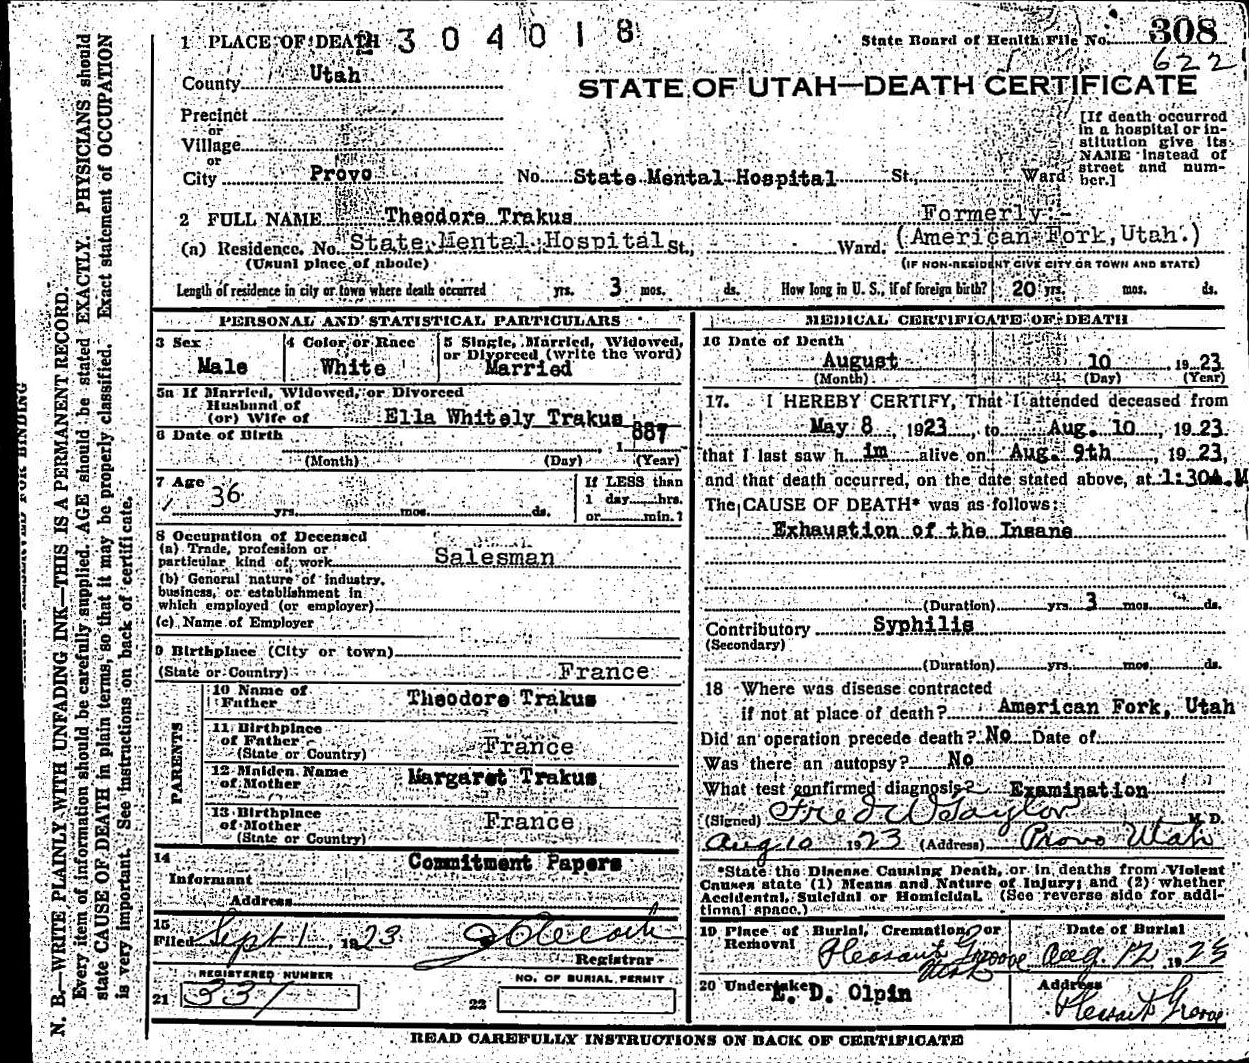 1 PLACE OF DEATH 3 0 4 0 1 8
State Board of Health File No. 308
622
County Utah
STATE OF UTAH—DEATH CERTIFICATE
Precinct
or
Village
or
City Provo No. State Mental Hospital St., Ward
[If death occurred
in a hospital or in-
stitution give its
NAME instead of
street and num-
ber.]
2 FULL NAME Theodore Trakus Formerly -
(a) Residence. No. State Mental Hospital St., Ward. (American Fork, Utah.)
(Usual place of abode) (IF NON-RESIDENT GIVE CITY OR TOWN AND STATE)
Length of residence in city or town where death occurred yrs. 3 mos. ds. How long in U. S., if of foreign birth? 20 yrs. mos. ds.
PERSONAL AND STATISTICAL PARTICULARS
3 Sex
Male
4 Color or Race
White
5 Single, Married, Widowed,
or Divorced (write the word)
Married
5a If Married, Widowed, or Divorced
Husband of
(or) Wife of Ella Whitely Trakus
6 Date of Birth 1 887
(Month) (Day) (Year)
7 Age 36
yrs. mos. ds.
If LESS than
1 day hrs.
or min.?
8 Occupation of Deceased
(a) Trade, profession or
particular kind of work Salesman
(b) General nature of industry,
business, or establishment in
which employed (or employer)
(c) Name of Employer
9 Birthplace (City or town)
(State or Country) France
PARENTS
10 Name of
Father Theodore Trakus
11 Birthplace
of Father
(State or Country) France
12 Maiden Name
of Mother Margaret Trakus
13 Birthplace
of Mother
(State or Country) France
14
Informant Commitment Papers
Address
15
Filed Sept 1, 1923
Registrar
REGISTERED NUMBER
21 337
NO. OF BURIAL PERMIT
22
MEDICAL CERTIFICATE OF DEATH
16 Date of Death
August 10 1923
(Month) (Day) (Year)
17. I HEREBY CERTIFY, That I attended deceased from
May 8, 1923, to Aug. 10, 1923
that I last saw h im alive on Aug. 9th, 1923,
and that death occurred, on the date stated above, at 1:30A.M
The CAUSE OF DEATH* was as follows:
Exhaustion of the Insane
(Duration) yrs. 3 mos. ds.
Contributory Syphilis
(Secondary)
(Duration) yrs. mos. ds.
18 Where was disease contracted
if not at place of death? American Fork, Utah
Did an operation precede death? No Date of
Was there an autopsy? No
What test confirmed diagnosis? Examination
(Signed) Fred W Taylor M. D.
Aug 10 1923 (Address) Provo Utah
*State the Disease Causing Death, or in deaths from Violent
Causes state (1) Means and Nature of Injury; and (2) whether
Accidental, Suicidal or Homicidal. (See reverse side for addi-
tional space.)
19 Place of Burial, Cremation, or
Removal Pleasant Groove
Utah
Date of Burial
Aug. 12, 1923
20 Undertaker
E. D. Olpin
Address
Pleasant Grove
READ CAREFULLY INSTRUCTIONS ON BACK OF CERTIFICATE
RESERVED FOR BINDING
N. B.—WRITE PLAINLY WITH UNFADING INK—THIS IS A PERMANENT RECORD.
Every item of information should be carefully supplied. AGE should be stated EXACTLY. PHYSICIANS should
state CAUSE OF DEATH in plain terms, so that it may be properly classified. Exact statement of OCCUPATION
is very important. See instructions on back of certificate.